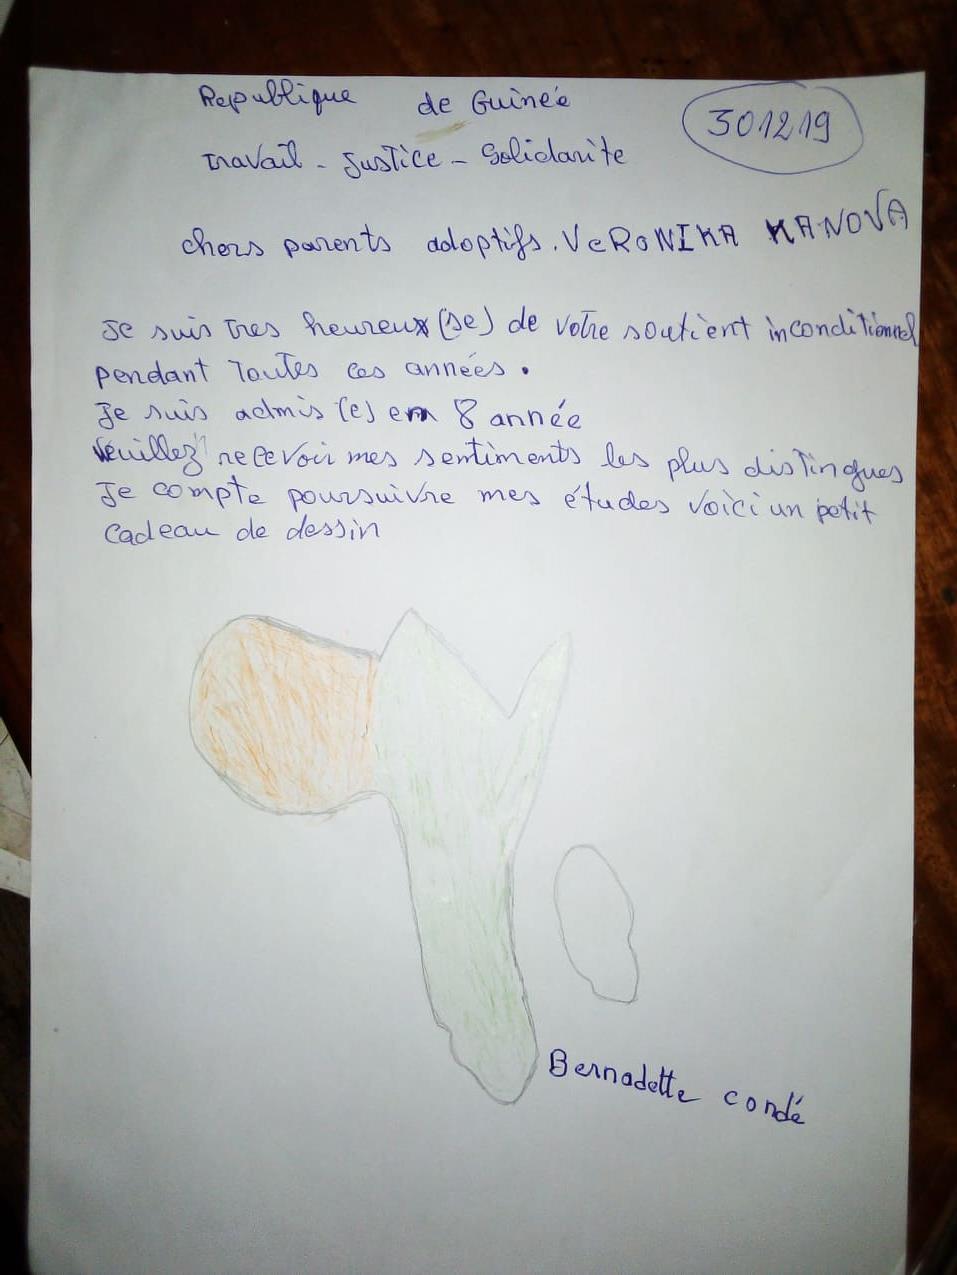 Republique de Guineé
301219
Travail - Justice - Solidarite
chers parents adoptifs. VeRONIKA KANOVA
Je suis tres heureux (se) de votre soutient inconditionnel
pendant toutes ces années.
Je suis admis (e) em 8 année
Veuillez recevoir mes sentiments les plus distingues
Je compte poursuivre mes études voici un petit
cadeau de dessin
Bernadette condé